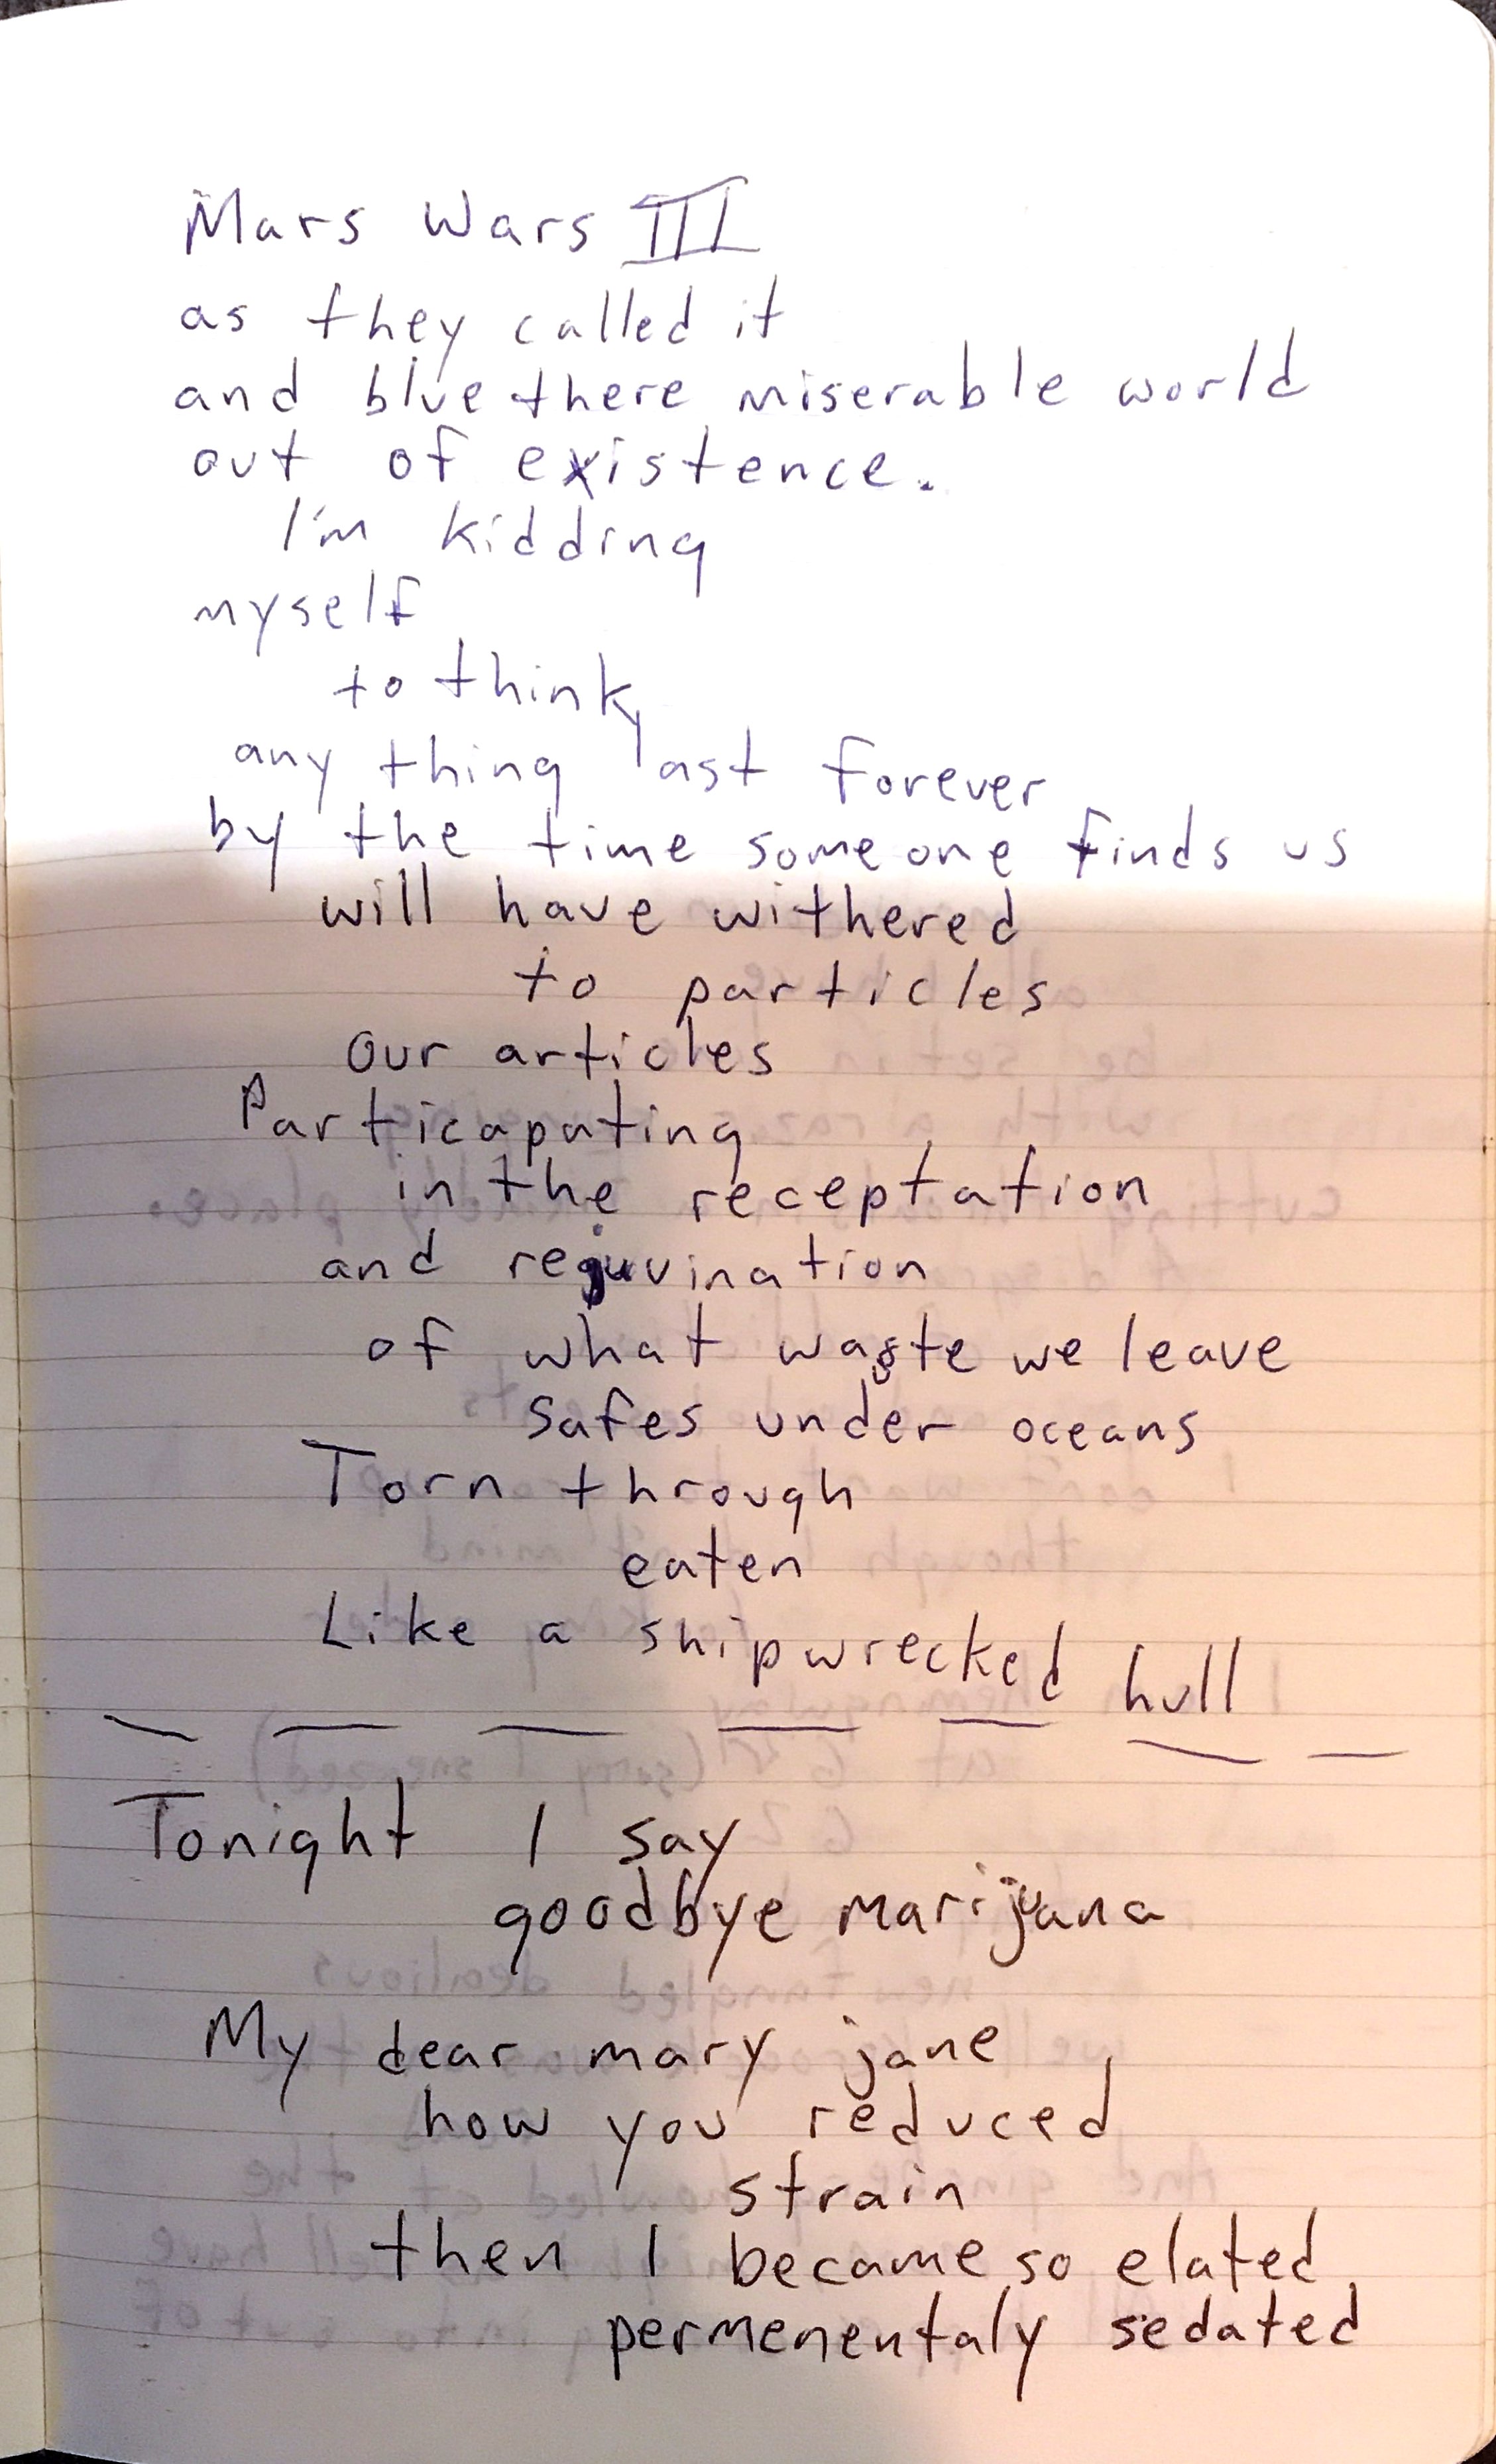 Mars Wars III
as they called it
and blue there miserable world
out of existence.
I'm kidding
myself
to think,
any thing last forever
by the time someone finds us
will have withered
to particles
our articles
Particapating
in the receptation
and rejuvination
of what waste we leave
safes under oceans
Torn through
eaten
Like a shipwrecked hull
Tonight I say
goodbye marijuana
My dear mary jane
how you reduced
strain
then I became so elated,
permenentaly sedated